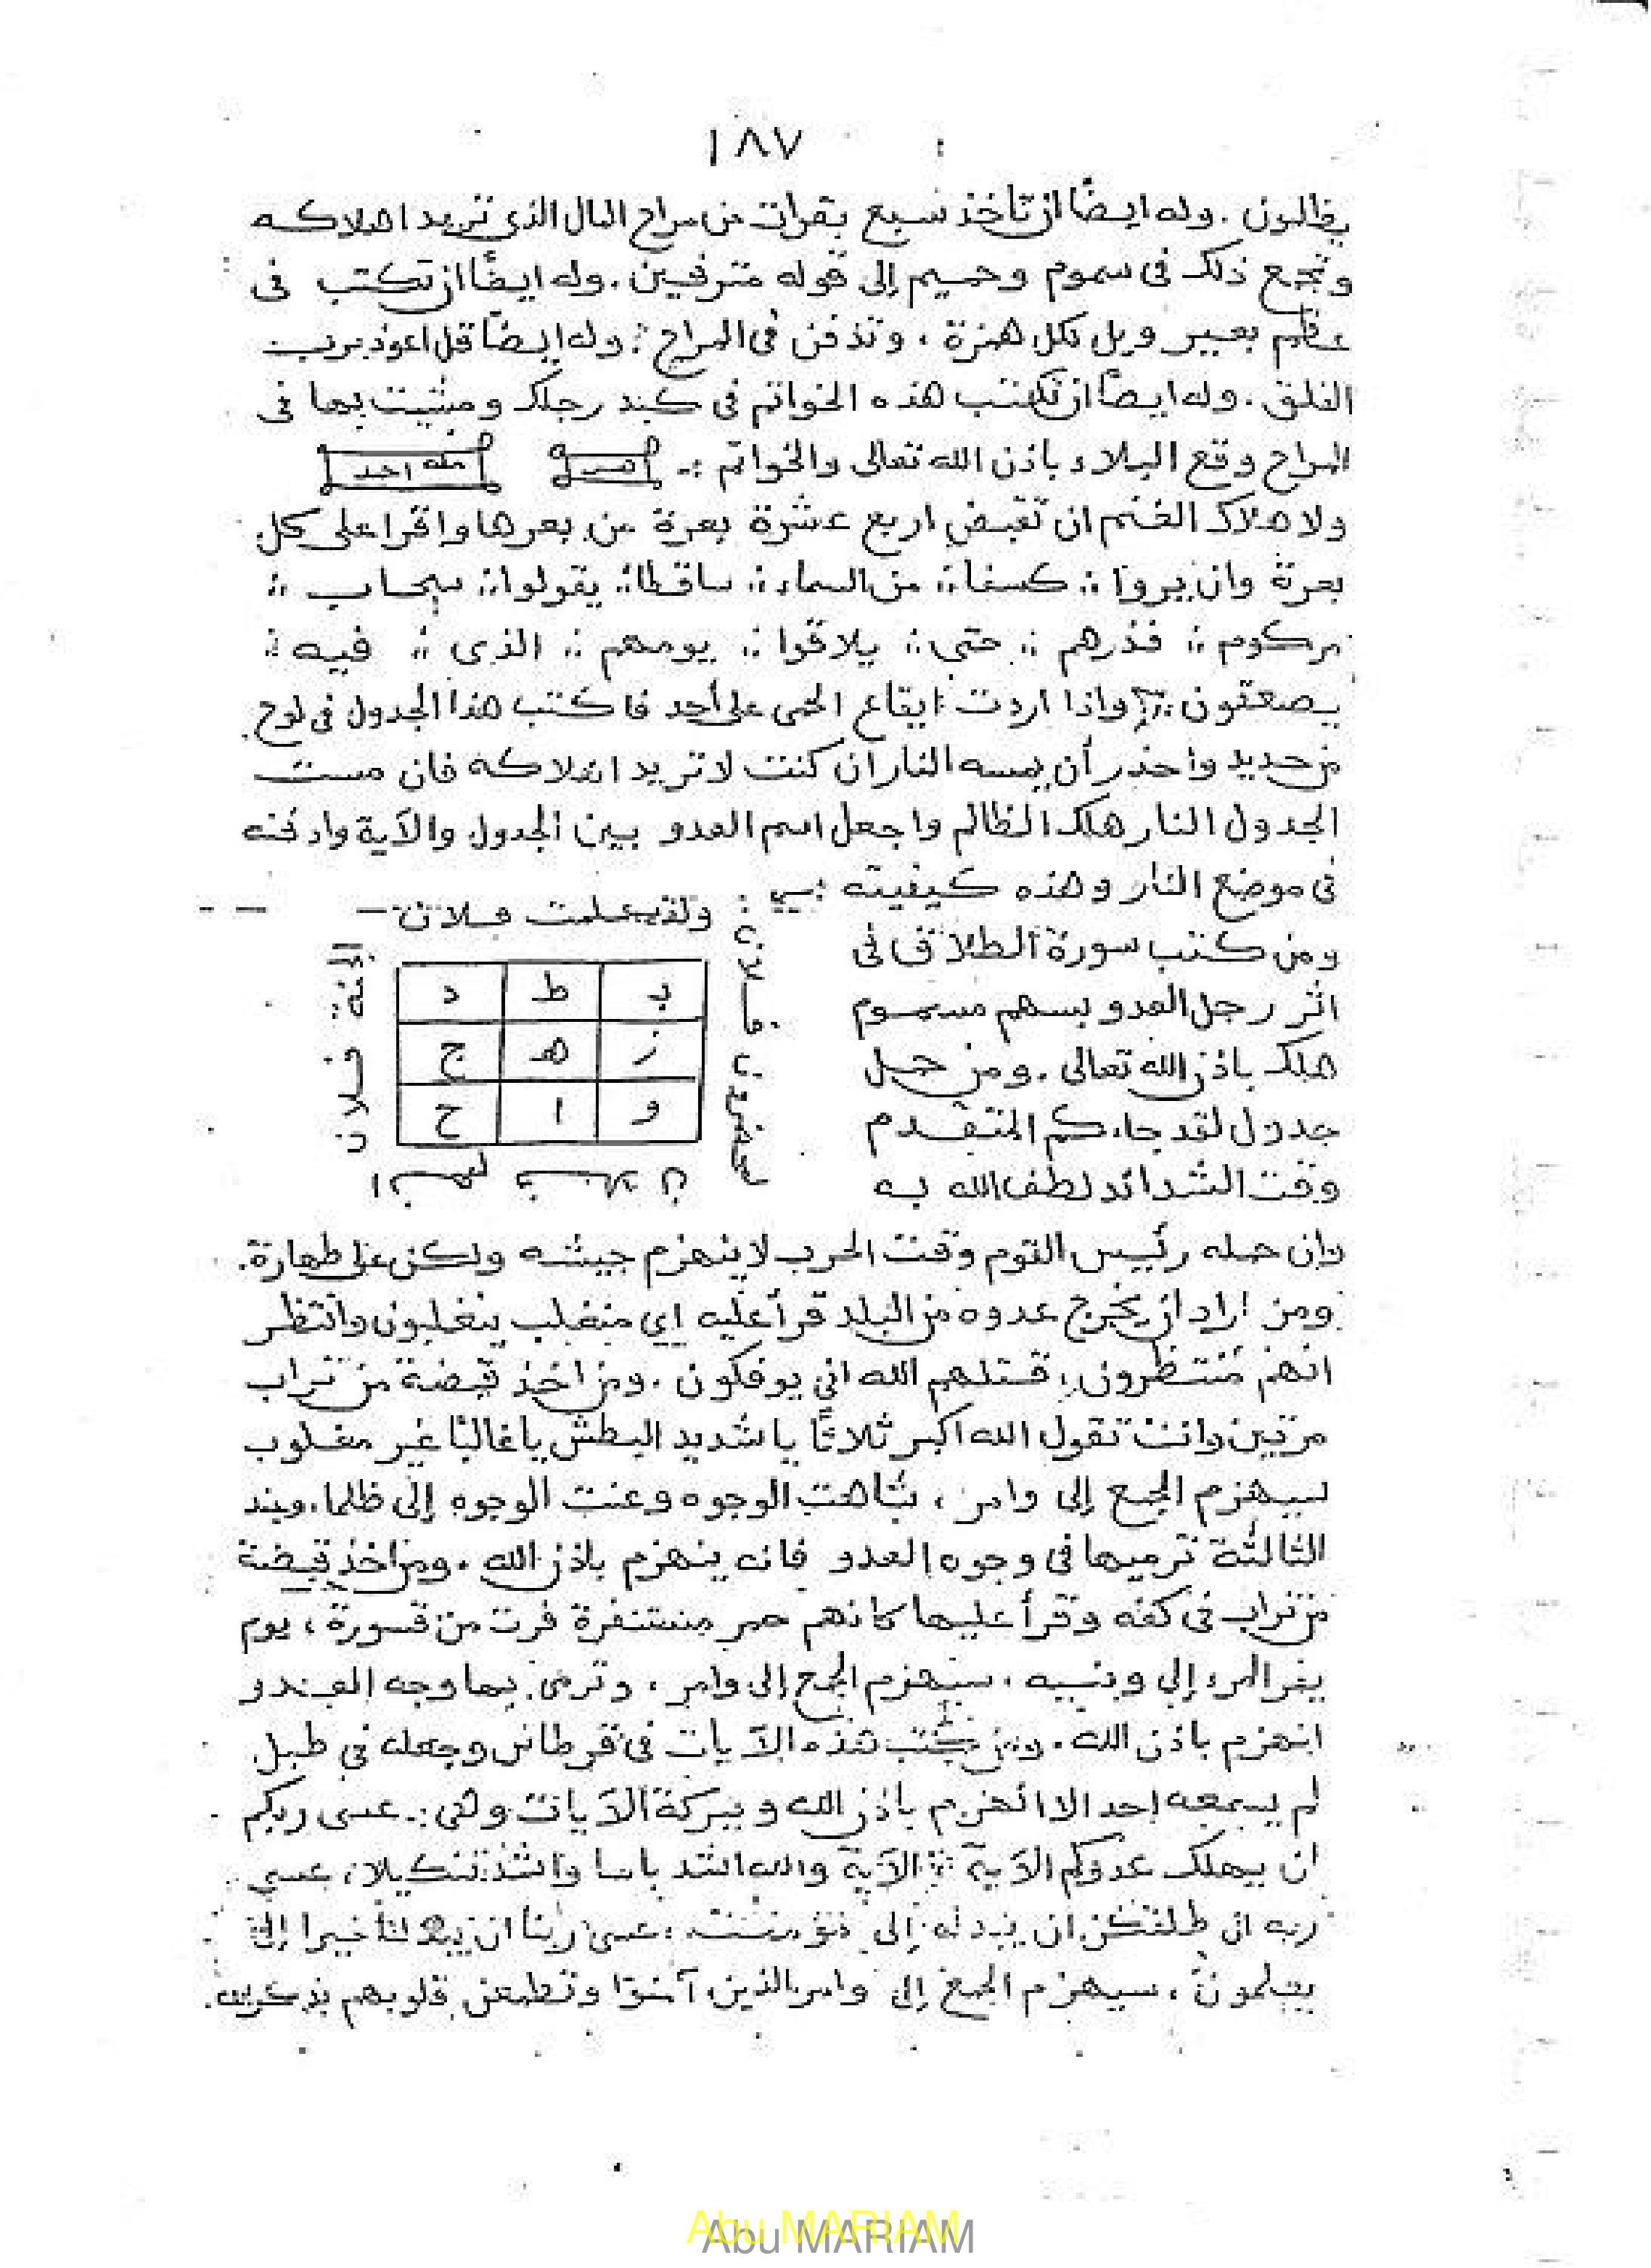 ١٨٧
يظلمون . وله ايضًا ان تأخذ سبع بقرات من مراح المال الذى تريد اهلاكه
وتجمع ذلك فى سموم وحميم إلى قوله مترفين . وله ايضًا ان تكتب فى
عظم بعير ويل لكل همزة ، وتدفن فى المراح : وله ايضًا قل اعوذ برب
الفلق . وله ايضًا ان تكتب هذه الخواتم فى كبد رجلك ومشيت بها فى
المراح وقع البلاء باذن الله تعالى والخواتم :-
احد
ولاهلاك الغنم ان تقبض اربع عشرة بعرة من بعرها واقرا على كل
بعرة وان يروا :: كسفا :: من السماء :: ساقطا :: يقولوا :: سحاب ::
مركوم :: فذرهم :: حتى :: يلاقوا :: يومهم :: الذى :: فيه ::
يصعقون :: واذا اردت ايقاع الحمى على أحد فاكتب هذا الجدول فى لوح
من حديد واحذر أن يمسه النار ان كنت لا تريد اهلاكه فان مست
الجدول النار هلك الظالم واجعل اسم العدو بين الجدول والآية وادفنه
فى موضع النار وهذه كيفيته :
ولقد علمت فلان
ومن كتب سورة الطلاق فى
اثر رجل العدو بسهم مسموم
هلك باذن الله تعالى . ومن حمل
جدول لقد جاءكم المتقدم
وقت الشدائد لطف الله به
ب ط د
ز ه ج
و ا ح
الجنة فلان
فلان
لمحضرون فلان
وان حمله رئيس القوم وقت الحرب لا ينهزم جيشه ولكن على طهارة .
ومن اراد ان يخرج عدوه من البلد قرأ عليه اي منقلب ينقلبون وانتظر
انهم منتظرون ، قتلهم الله انى يوفكون . ومن اخذ قبضة من تراب
مرتين وانت تقول الله اكبر ثلاثًا يا شديد البطش يا غالبًا غير مغلوب
سيهزم الجمع إلى وامر ، شاهت الوجوه وعنت الوجوه إلى ظلما . وعند
الثالثة ترميها فى وجوه العدو فانه ينهزم باذن الله . ومن اخذ قبضة
من تراب فى كفه وقرأ عليها كانهم حمر مستنفرة فرت من قسورة ، يوم
يفر المرء إلى وبنيه ، سيهزم الجمع إلى وامر ، وترمى بها وجه العدو
انهزم باذن الله . ومن كتب هذه الآيات فى قرطاس وجعله فى طبل
لم يسمعه احد الا انهزم باذن الله وببركة الآيات وهى :. عسى ربكم
ان يهلك عدوكم الآية :: الآية والله اشد باسا واشد تنكيلا ، عسى
ربه ان طلقكن ان يبدله إلى مؤمنت ، عسى ربنا ان يبدلنا خيرا إلى
يعلمون ، سيهزم الجمع إلى وامر الذين آمنوا وتطمئن قلوبهم بذكر الله .
Abu MARIAM